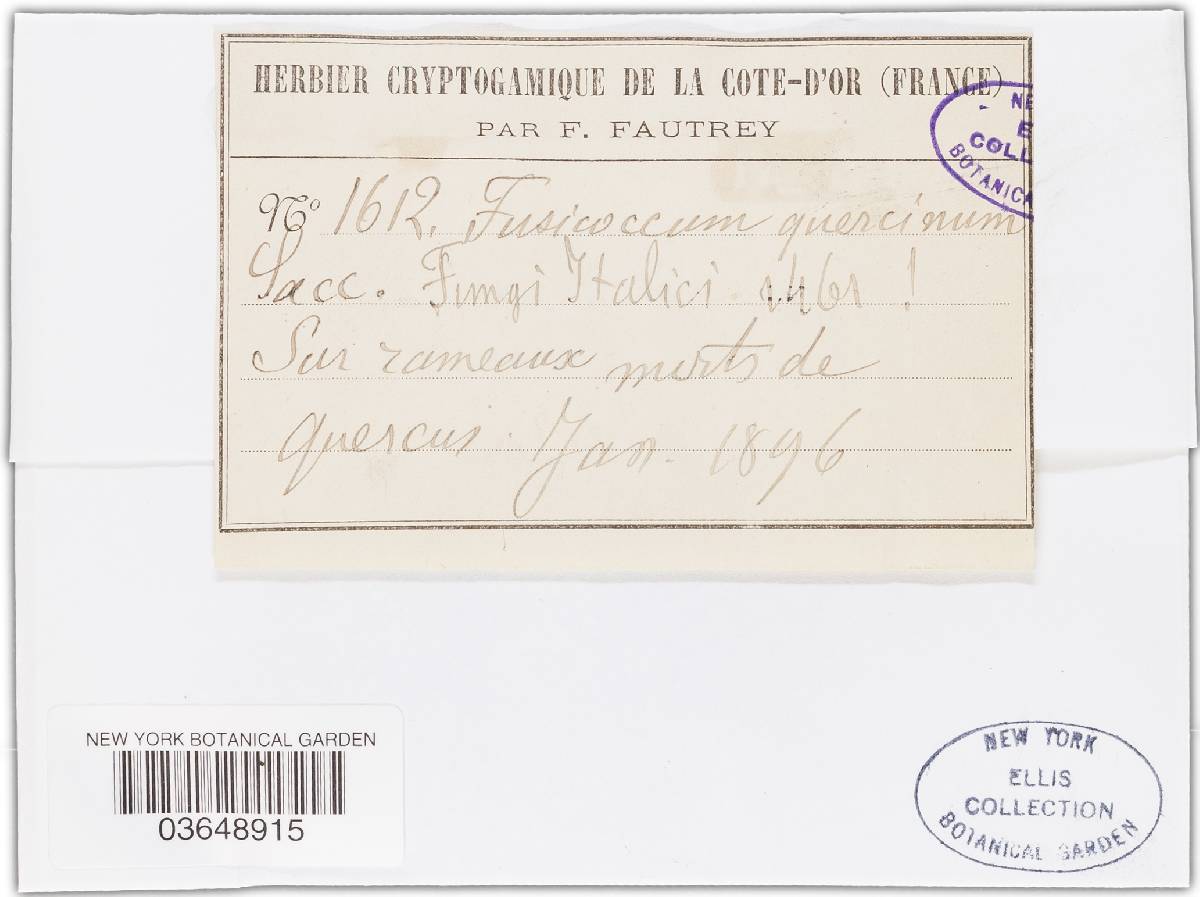 HERBIER CRYPTOGAMIQUE DE LA COTE-D'OR (FRANCE)
PAR F. FAUTREY
NE
E
COLL
BOTANICA
No 1612. Fusicoccum quercinum
Sacc. Fungi Italici !
Sur rameaux morts de
quercus. Jan. 1896
NEW YORK BOTANICAL GARDEN
03648915
NEW YORK
ELLIS
COLLECTION
BOTANICAL GARDEN